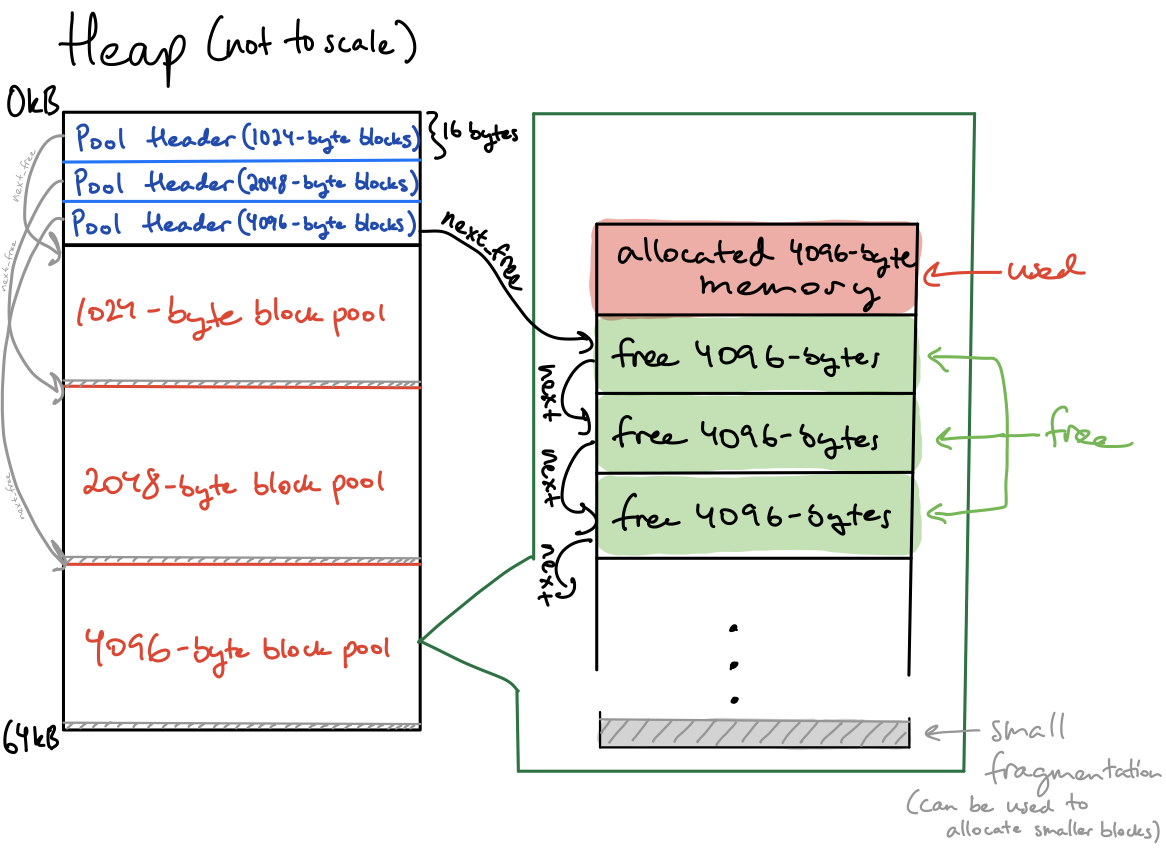 Heap (not to scale)
0kB
Pool Header (1024-byte blocks)
16 bytes
Pool Header (2048-byte blocks)
Pool Header (4096-byte blocks)
next_free
next_free
next_free
next_free
1024-byte block pool
2048-byte block pool
4096-byte block pool
64kB
allocated 4096-byte
memory
used
free 4096-bytes
next
free 4096-bytes
free
next
free 4096-bytes
next
small
fragmentation
(can be used to
allocate smaller blocks)